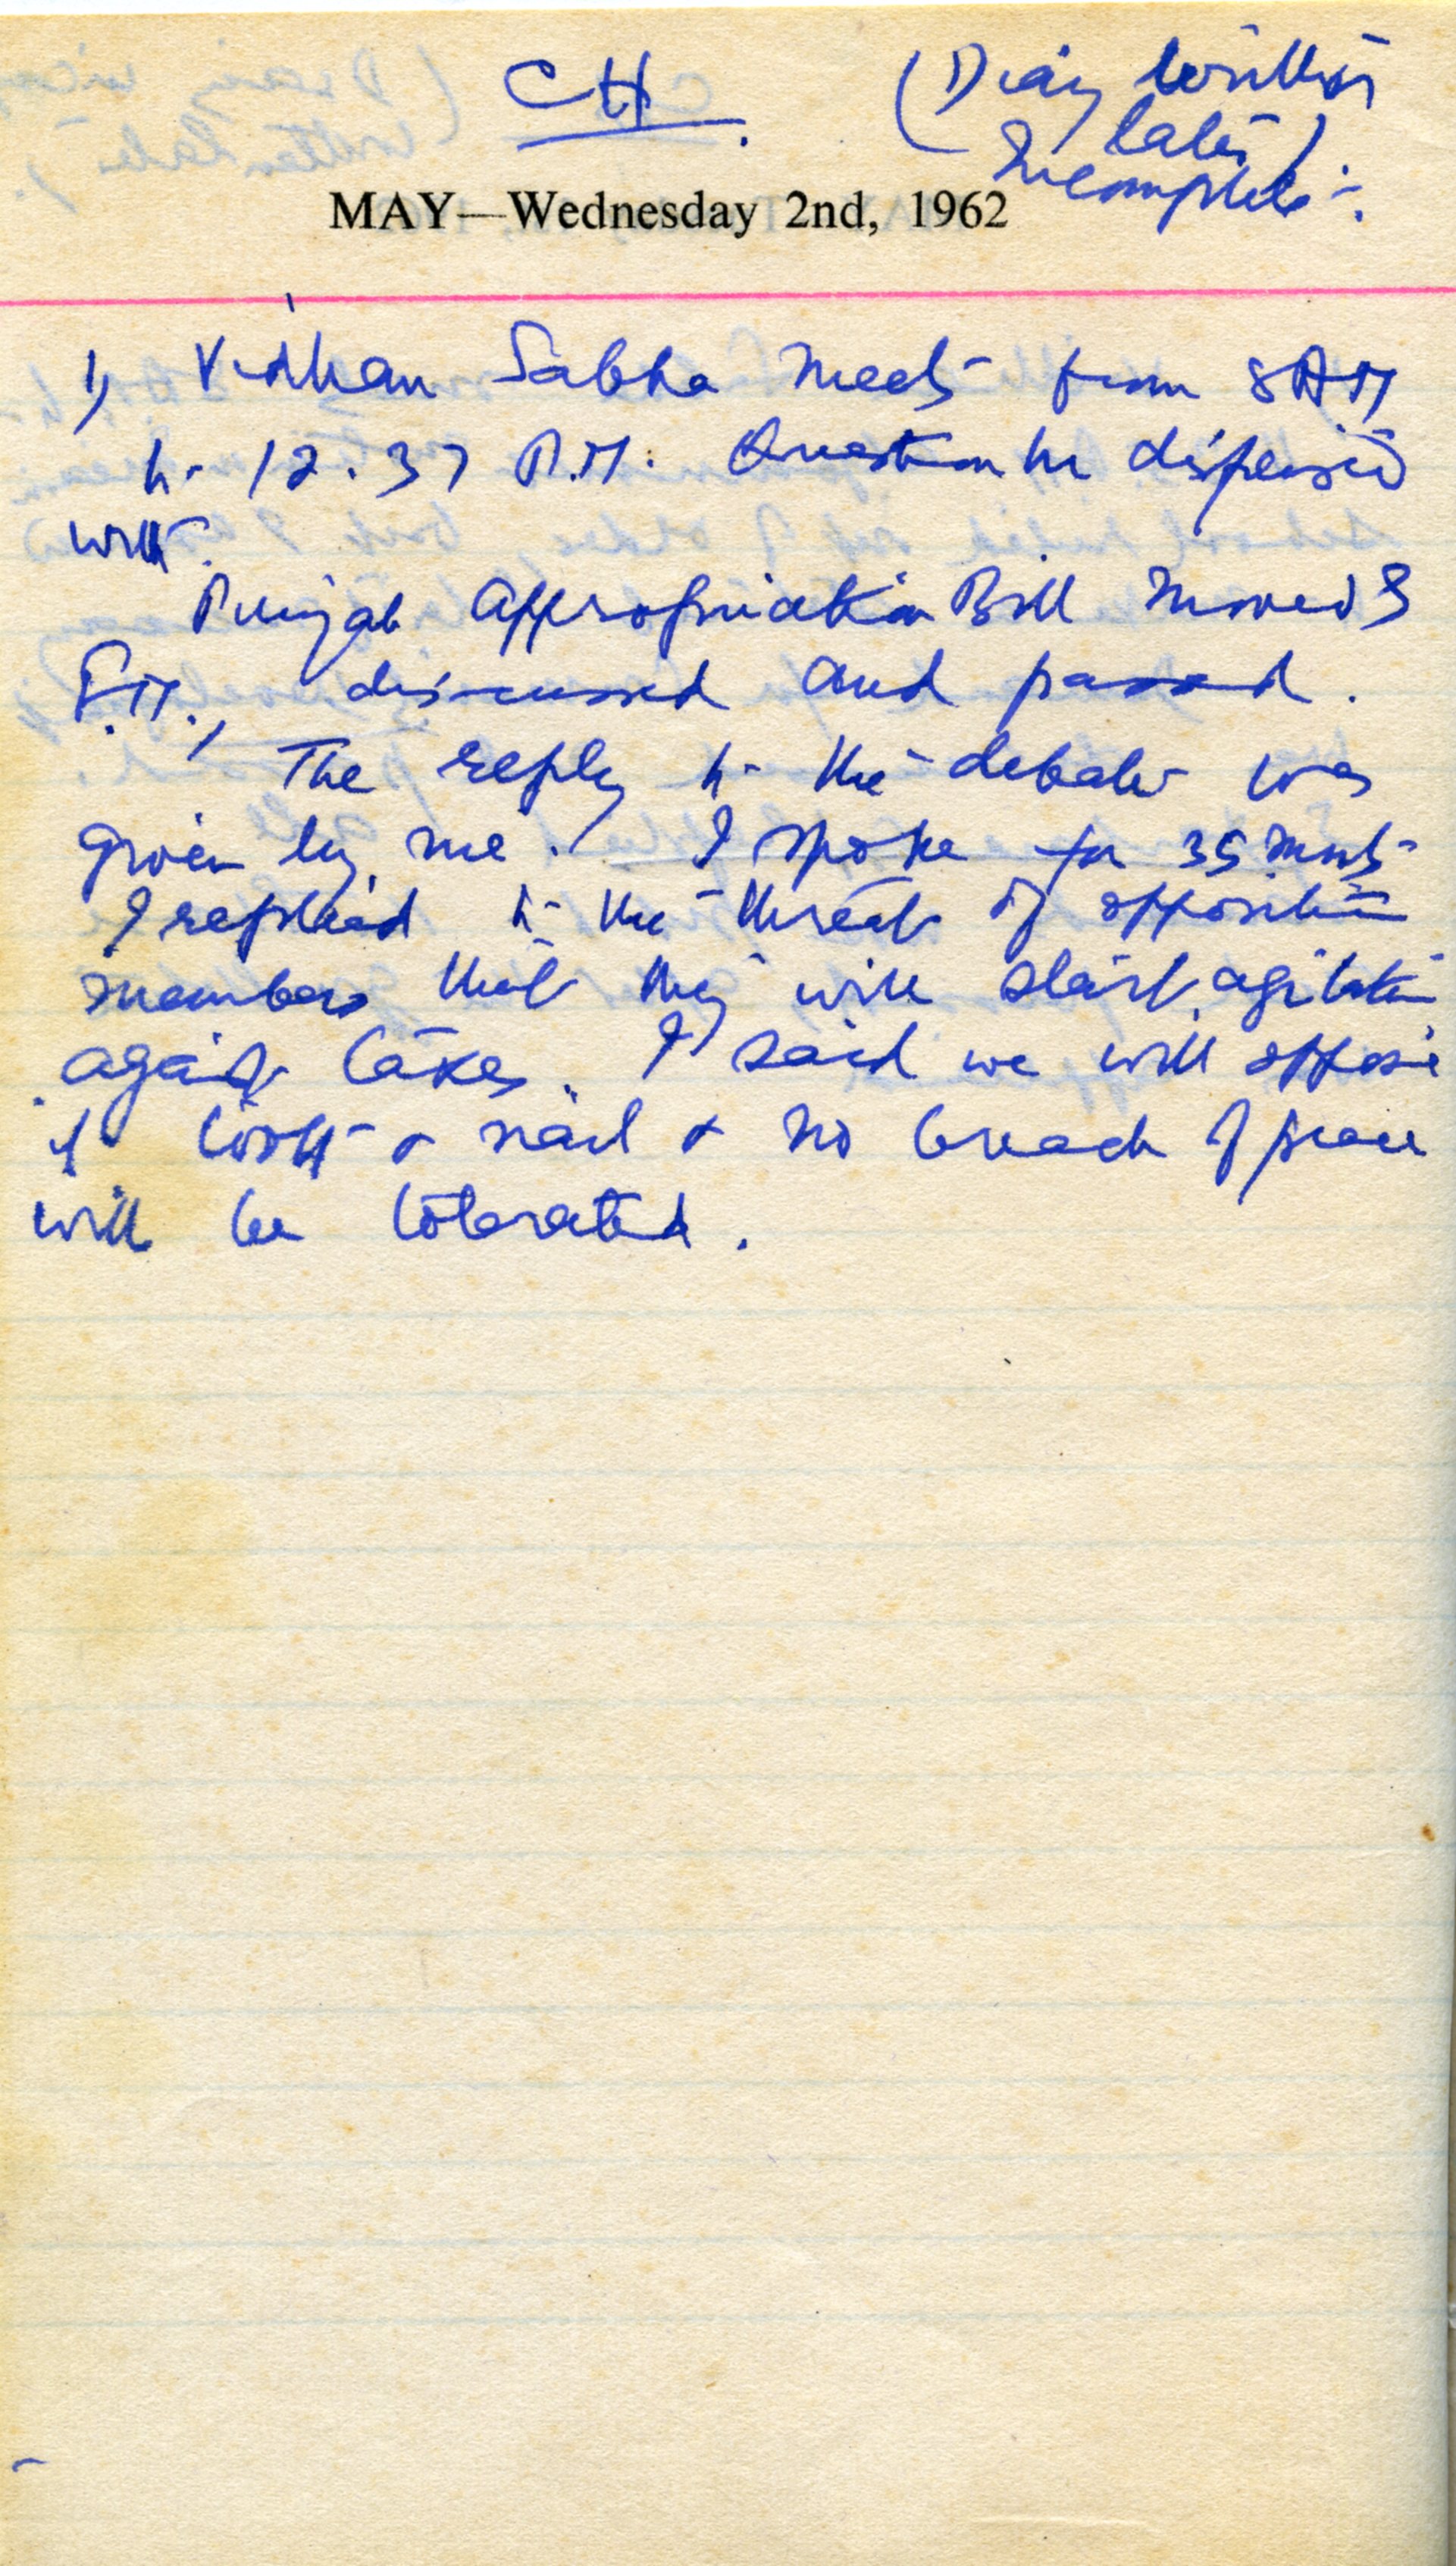 CH.
(Diary written
late).
Incomplete.
MAY—Wednesday 2nd, 1962
1) Vidhan Sabha meets from 8 AM
to 12.37 P.M. Question hr dispensed
with.
Punjab Appropriation Bill moved
F.M., discussed and passed.
The reply to the debate was
given by me. I spoke for 35 mnts
I replied to the threat of opposition
members that they will start agitation
against taxes. I said we will oppose
it tooth & nail & no breach of peace
will be tolerated.